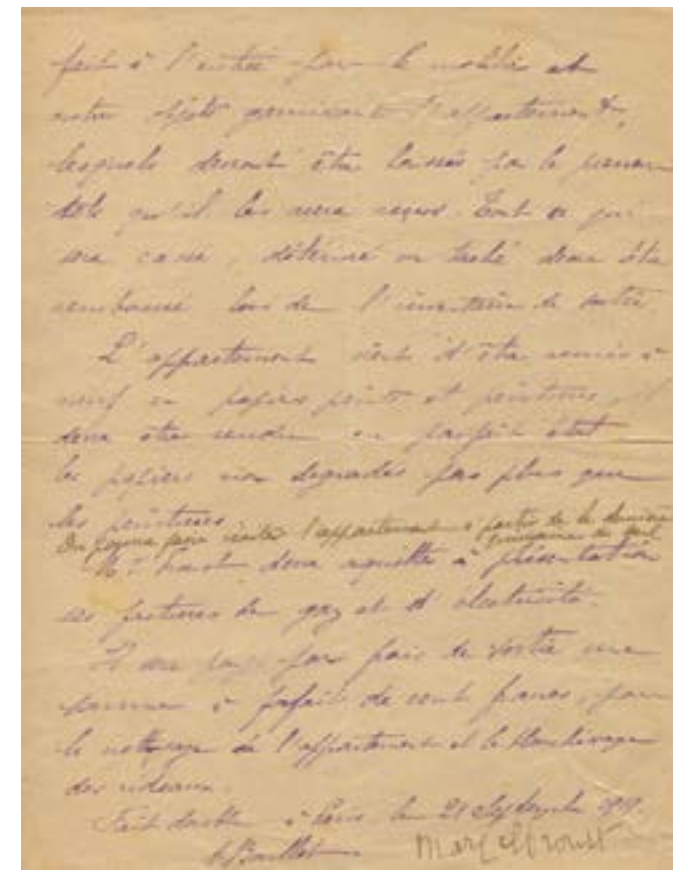 fait à l'entrée pour le mobilier et
autres objets garnissant l'appartement,
lesquels devront être laissés par le preneur
tels qu'il les aura reçus. Tout ce qui
sera cassé, détérioré ou taché devra être
remboursé lors de l'inventaire de sortie.
L'appartement vient d'être remis à
neuf en papiers peints et peintures, il
devra être rendu en parfait état
les papiers non dégradés pas plus que
les peintures.
On pourra faire visiter l'appartement à partir de la dernière
quinzaine de
Mr Proust devra acquitter à présentation
ses factures de gaz et d'électricité.
Il sera payé par frais de sortie une
somme à forfait de cent francs, pour
le nettoyage de l'appartement et le blanchissage
des rideaux.
Fait double à Paris le 21 Septembre 1919.
Marcel Proust